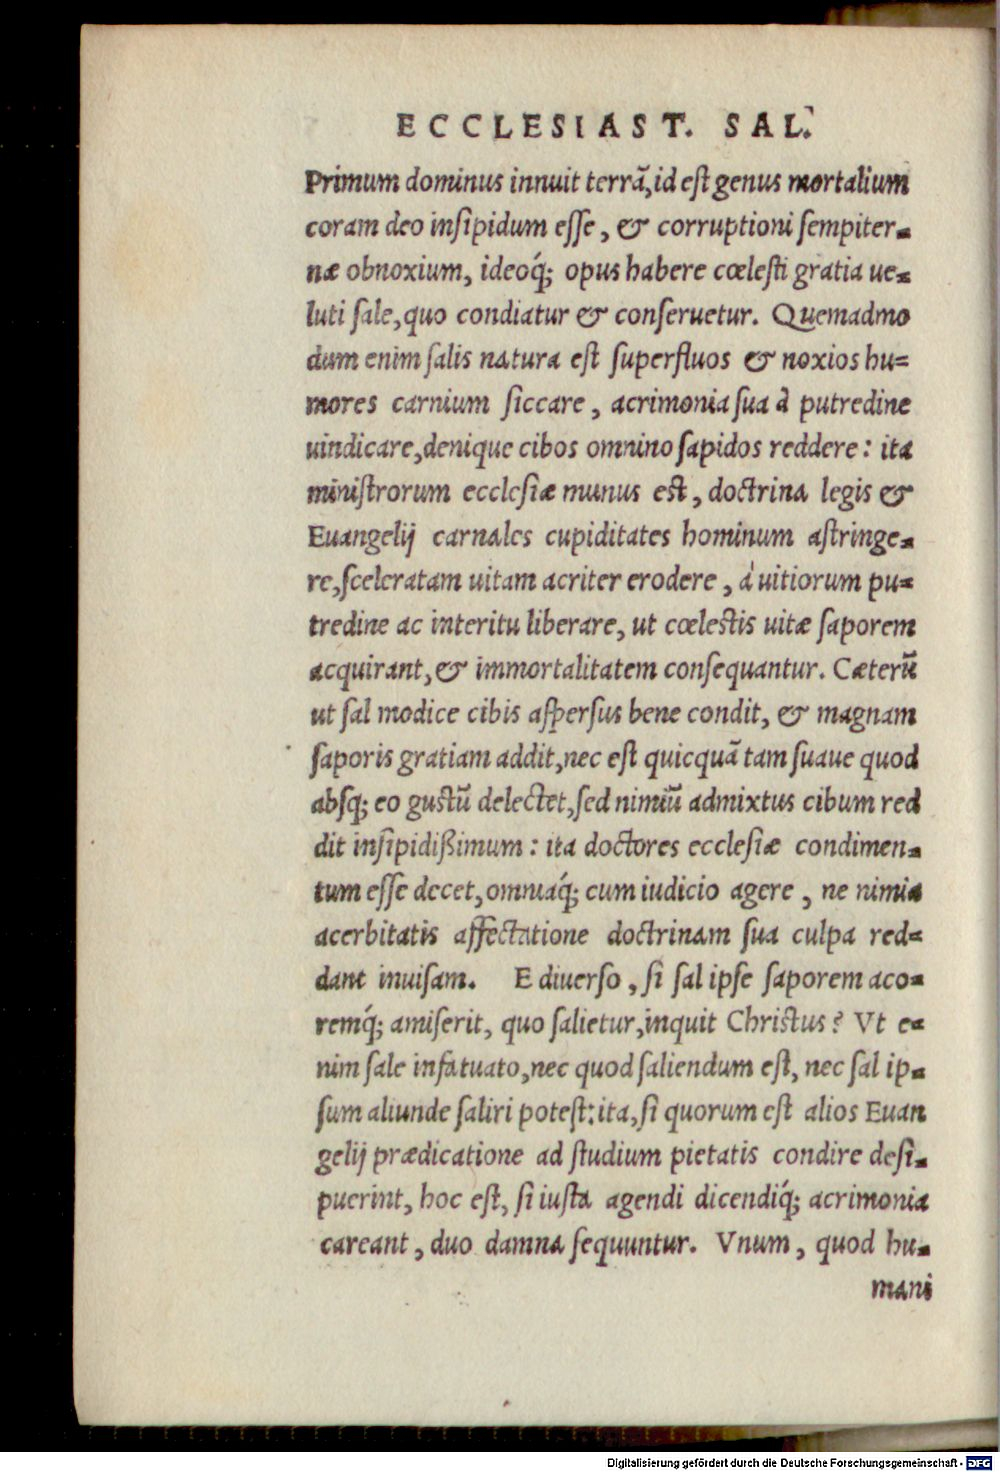 ECCLESIAST. SAL.
Primum dominus innuit terrã, id est genus mortalium
coram deo insipidum esse, & corruptioni sempiter-
næ obnoxium, ideoq́; opus habere cœlesti gratia ue-
luti sale, quo condiatur & conseruetur. Quemadmo
dum enim salis natura est superfluos & noxios hu-
mores carnium siccare, acrimonia sua à putredine
uindicare, denique cibos omnino sapidos reddere: ita
ministrorum ecclesiæ munus est, doctrina legis &
Euangelij carnales cupiditates hominum astringe-
re, sceleratam uitam acriter erodere, à uitiorum pu-
tredine ac interitu liberare, ut cœlestis uitæ saporem
acquirant, & immortalitatem consequantur. Cæterũ
ut sal modice cibis aspersus bene condit, & magnam
saporis gratiam addit, nec est quicquã tam suaue quod
absq; eo gustũ delectet, sed nimiũ admixtus cibum red
dit insipidißimum: ita doctores ecclesiæ condimen-
tum esse decet, omniaq́; cum iudicio agere, ne nimia
acerbitatis affectatione doctrinam sua culpa red-
dant inuisam. E diuerso, si sal ipse saporem aco-
remq́; amiserit, quo salietur, inquit Christus? Vt e-
nim sale infatuato, nec quod saliendum est, nec sal ip-
sum aliunde saliri potest: ita, si quorum est alios Euan
gelij prædicatione ad studium pietatis condire desi-
puerint, hoc est, si iusta agendi dicendiq́; acrimonia
careant, duo damna sequuntur. Vnum, quod hu-
mani
Digitalisierung gefördert durch die Deutsche Forschungsgemeinschaft - DFG